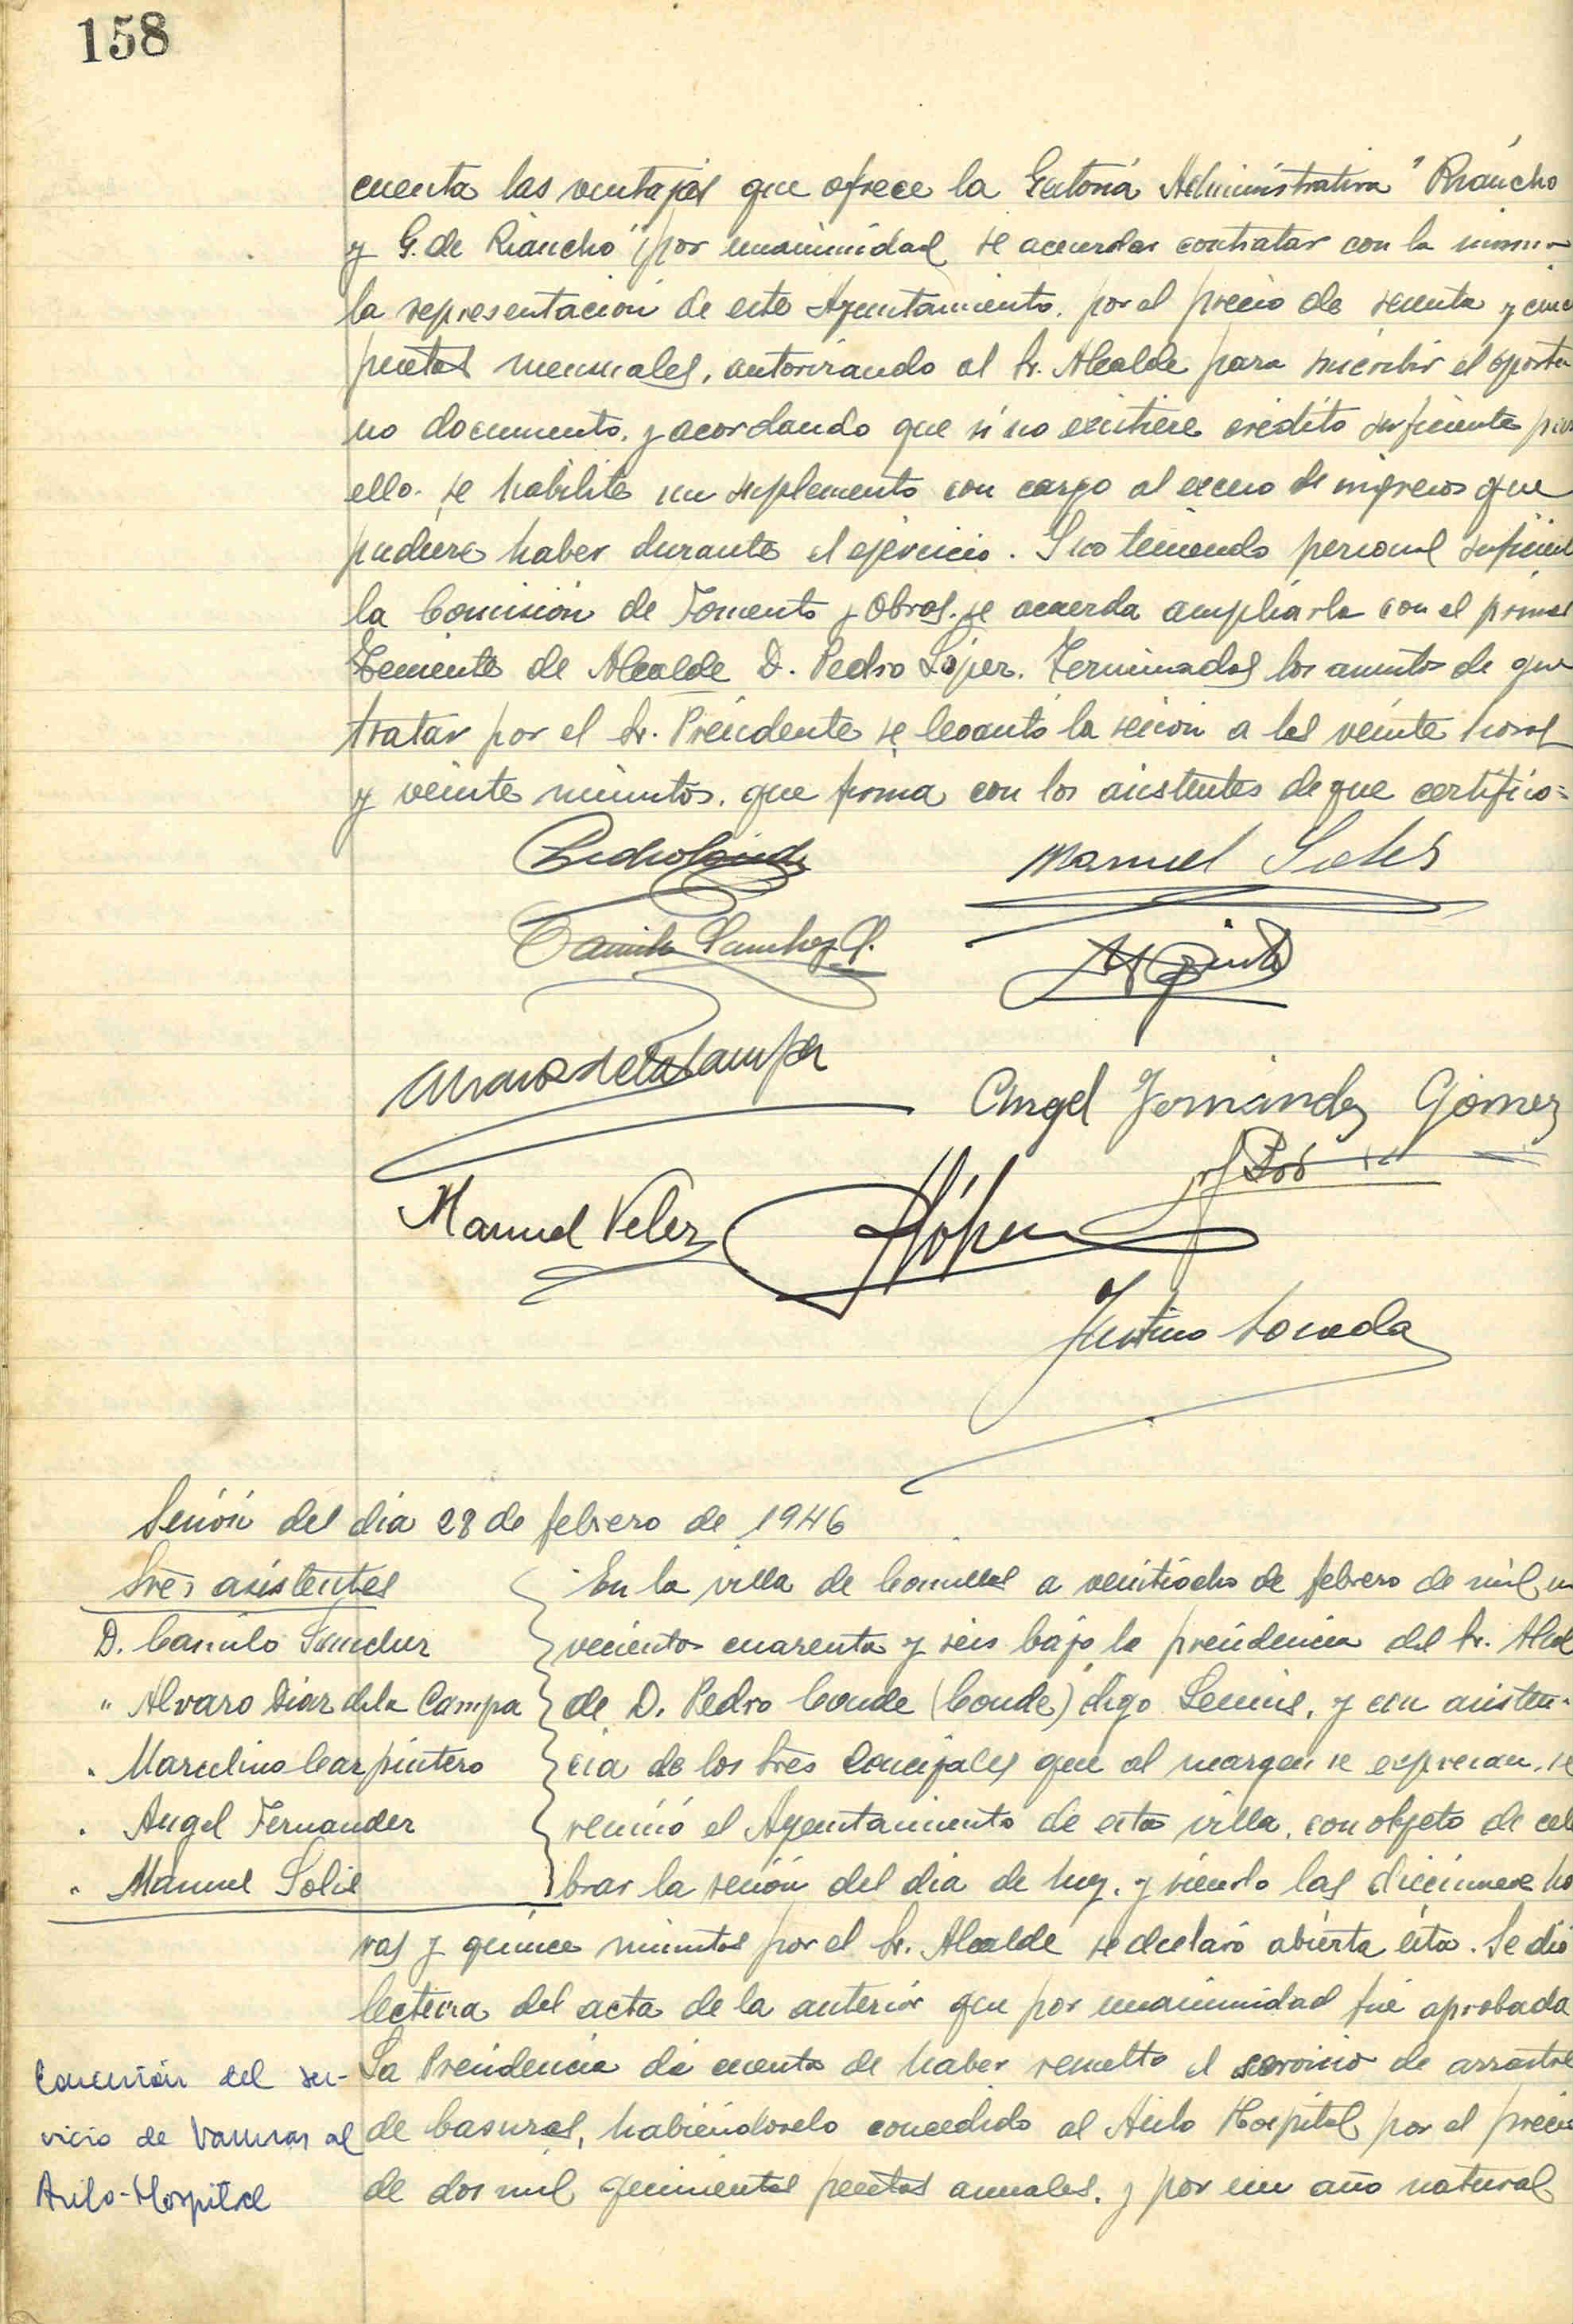 158
cuenta las ventajas que ofrece la Gestoria Administrativa "Riáncho
y G. de Riancho", por unanimidad se acuerda contratar con la misma
la representación de este Ayuntamiento, por el precio de setenta y cinco
pesetas mensuales, autorizando al Sr. Alcalde para suscribir el oportu
no documento, y acordando que si no existiere crédito suficiente para
ello se habilite un suplemento con cargo al exceso de ingresos que
pudiere haber durante el ejercicio. Y no teniendo personal suficiente
la Comisión de Fomento y Obras se acuerda ampliarla con el primer
Teniente de Alcalde D. Pedro López. Terminados los asuntos de que
tratar por el Sr. Presidente se levantó la sesión a las veinte horas
y veinte minutos, que firma con los asistentes de que certifico=
Manuel Solis
Camilo Sanchez
Alvaro de la Campa
Angel Fernandez Gómez
Manuel Velez
PLópez
Justino
Sesión del dia 28 de febrero de 1946
Sres asistentes
D. Camilo Sanchez
" Alvaro Diaz dela Campa
" Marcelino Carpintero
" Angel Fernandez
" Manuel Solis
En la villa de Comillas a veintiocho de febrero de mil no
vecientos cuarenta y seis bajo la presidencia del Sr. Alcal
de D. Pedro Conde (Conde) digo, y con asisten-
cia de los Sres Concejales que al margen se expresan, se
reunió el Ayuntamiento de esta villa, con objeto de cele
brar la sesión del dia de hoy, y siendo las diecinueve ho
ras y quince minutos por el Sr. Alcalde se declaró abierta ésta. Se dió
lectura del acta de la anterior que por unanimidad fué aprobada
La Presidencia dá cuenta de haber resuelto el servicio de arrastre
de basuras, habiéndoselo concedido al Asilo Hospital por el precio
de dos mil quinientas pesetas anuales, y por un año natural
Concesión del ser-
vicio de basuras al
Asilo-Hospital